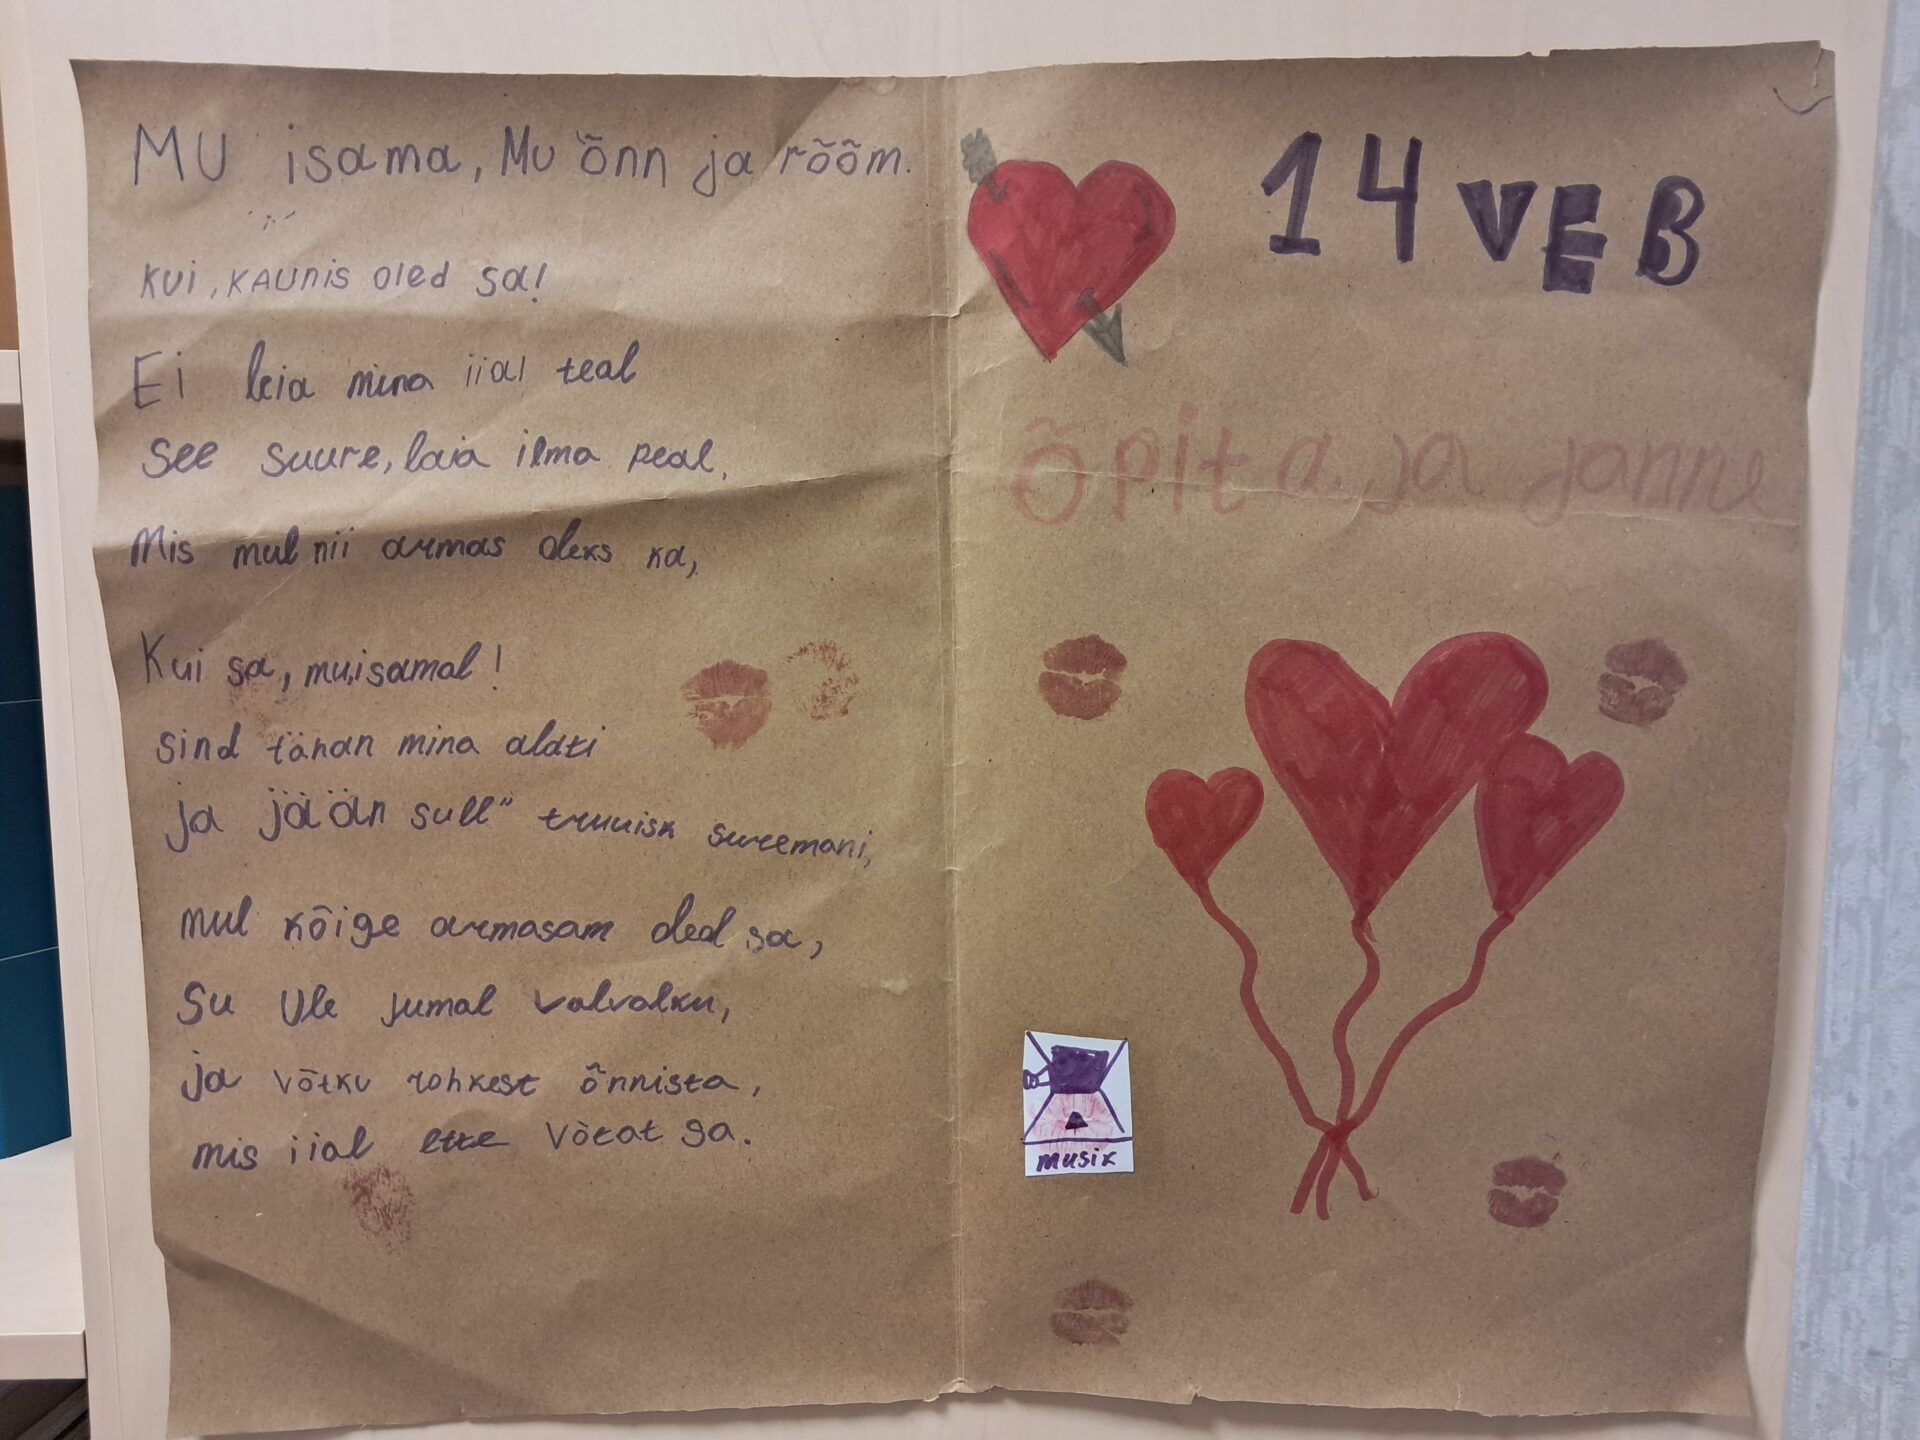 MU isama, Mu õnn ja rõõm.
Kui, KAUNis oled sa!
Ei leia mina iial teal
See suure, laia ilma peal,
Mis mul nii armas oleks ka,
Kui sa, mu,isamal!
sind tänan mina aldti
ja jään sull" truuisk sureemani,
mul kõige armasam oled sa,
Su Ule jumal valvalku,
ja võtku rohkest õnnista,
mis iial ette võtat sa.
14 VEB
Õpita ja janne
musix